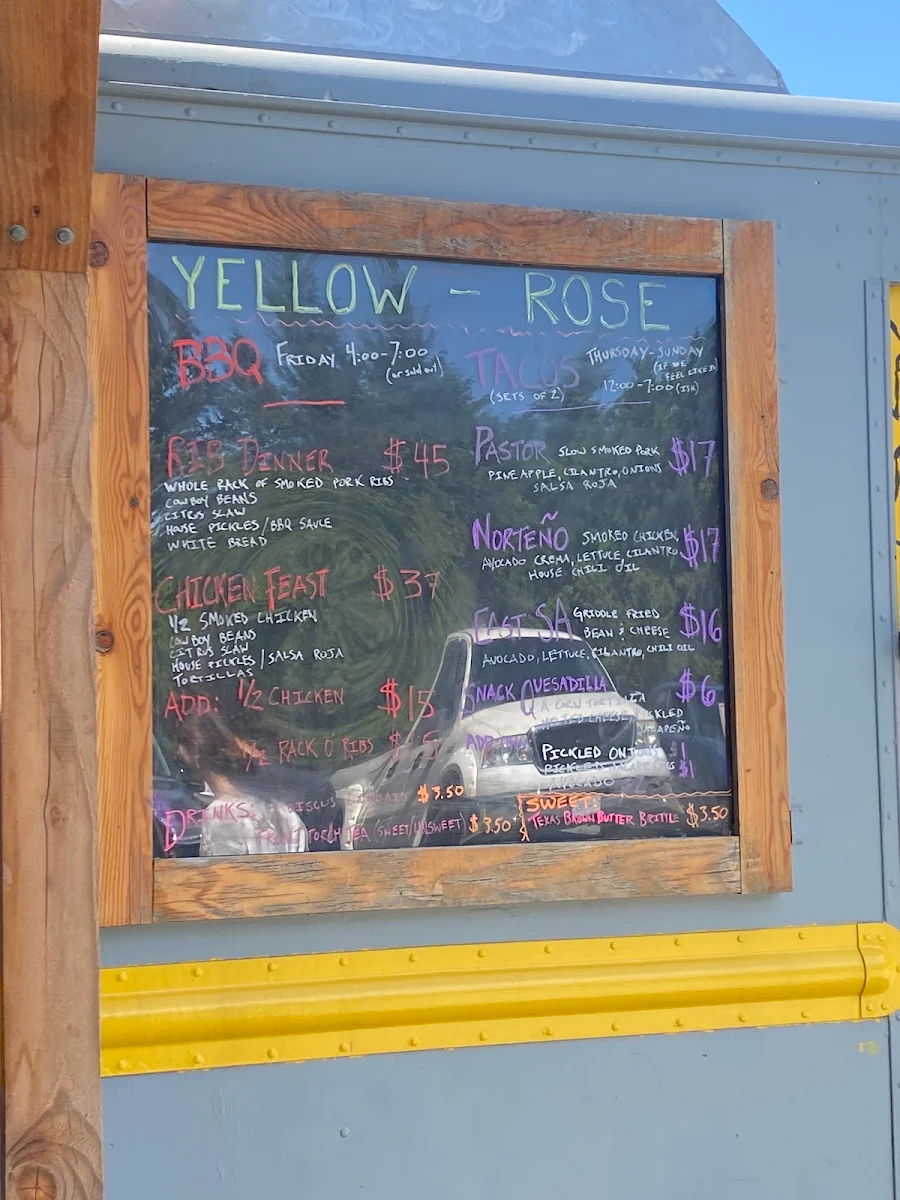 YELLOW - ROSE
BBQ FRIDAY 4:00-7:00
(or sold out)
RIB DINNER $45
WHOLE RACK OF SMOKED PORK RIBS
COWBOY BEANS
CITRUS SLAW
HOUSE PICKLES/BBQ SAUCE
WHITE BREAD
CHICKEN FEAST $37
1/2 SMOKED CHICKEN
COWBOY BEANS
CITRUS SLAW
HOUSE PICKLES/SALSA ROJA
TORTILLAS
ADD: 1/2 CHICKEN $15
1/2 RACK O RIBS
DRINKS: HIBISCUS $3.50
TEA (SWEET/UNSWEET) $3.50
TACOS THURSDAY-SUNDAY
(IF WE
FEEL LIKE IT)
(SETS OF 2) 12:00-7:00 (ISH)
PASTOR SLOW SMOKED PORK $17
PINEAPPLE, CILANTRO, ONIONS
SALSA ROJA
NORTEÑO SMOKED CHICKEN, $17
AVOCADO CREMA, LETTUCE, CILANTRO
HOUSE CHILI OIL
EAST SA GRIDDLE FRIED $16
BEAN & CHEESE
AVOCADO, LETTUCE, CILANTRO, CHILI OIL
SNACK QUESADILLA $6
A CORN TORTILLA
MELTED CHEESE, PICKLED
JALAPEÑO
PICKLED ONIONS $1
$1
AVOCADO
SWEET:
TEXAS BROWN BUTTER BRITTLE $3.50